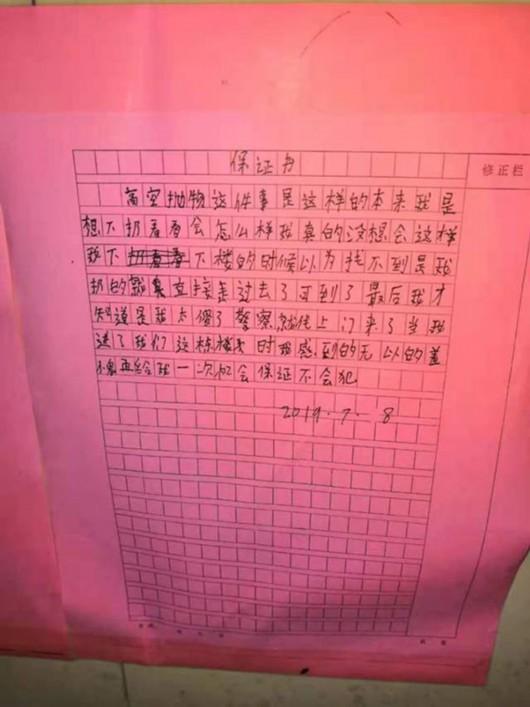 保证书
修正栏
高空抛物这件事是这样的本来我是
想下扔看看会怎么样我真的没想会这样
我下扔看看下楼的时候以为找不到是我
扔的就直接走过去了可到了最后我才
知道是我太傻了警察就找上门来了当我
进了我们这栋楼时我感到的无以的羞
愧再给我一次机会保证不会犯
2019.7.8